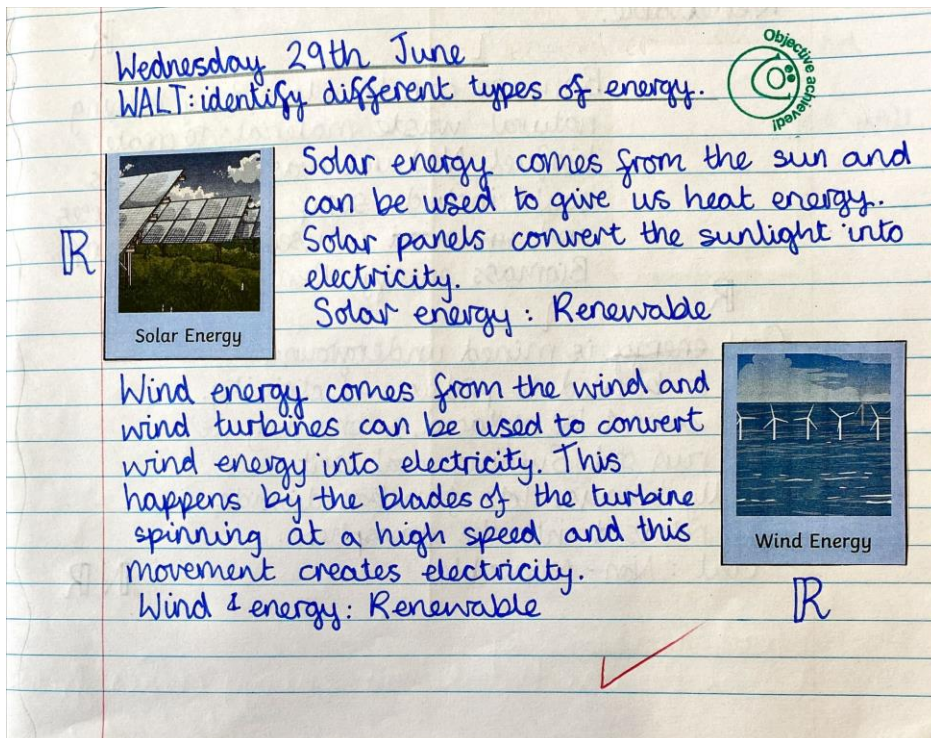 Wednesday 29th June
WALT: identify different types of energy.
Objective achieved!
Solar energy comes from the sun and
can be used to give us heat energy.
Solar panels convert the sunlight into
electricity.
Solar energy : Renewable
R
Solar Energy
Wind energy comes from the wind and
wind turbines can be used to convert
wind energy into electricity. This
happens by the blades of the turbine
spinning at a high speed and this
movement creates electricity.
Wind energy: Renewable
Wind Energy
R